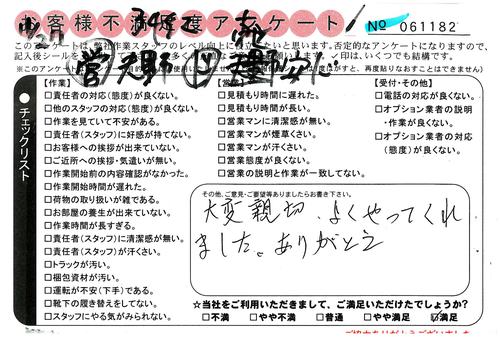 お客様不満足度アンケート
No 061182
このアンケートは、弊社作業スタッフのレベル向上に役立たせたいと思います。否定的なアンケートになりますので、
【作業】
□責任者の対応(態度)が良くない。
□他のスタッフの対応(態度)が良くない。
□作業を見ていて不安がある。
□責任者(スタッフ)に好感が持てない。
□お客様への挨拶が出来ていない。
□ご近所への挨拶・気遣いが無い。
□作業開始前の内容確認がなかった。
□作業開始時間が遅れた。
□荷物の取り扱いが雑である。
□お部屋の養生が出来ていない。
□作業時間が長すぎる。
□責任者(スタッフ)に清潔感が無い。
□責任者(スタッフ)が汗くさい。
□トラックが汚い。
□梱包資材が汚い。
□運転が不安(下手)である。
□靴下の履き替えをしてない。
□スタッフにやる気がみられない。
□見積もり時間に遅れた。
□見積もり時間が長い。
□営業マンに清潔感が無い。
□営業マンが煙草くさい。
□営業マンが汗くさい。
□営業態度が良くない。
□営業の説明と作業が一致してない。
【受付・その他】
□電話の対応が良くない。
□オプション業者の説明
・作業が良くない。
□オプション業者の対応
(態度)が良くない。
●チェックリスト
その他、ご意見・ご要望等ありましたらお書き下さい。
大変親切、よくやってくれ
ました。ありがとう
☆当社をご利用いただきまして、ご満足いただけたでしょうか?
□不満 □やや不満 □普通 □やや満足 ☑満足